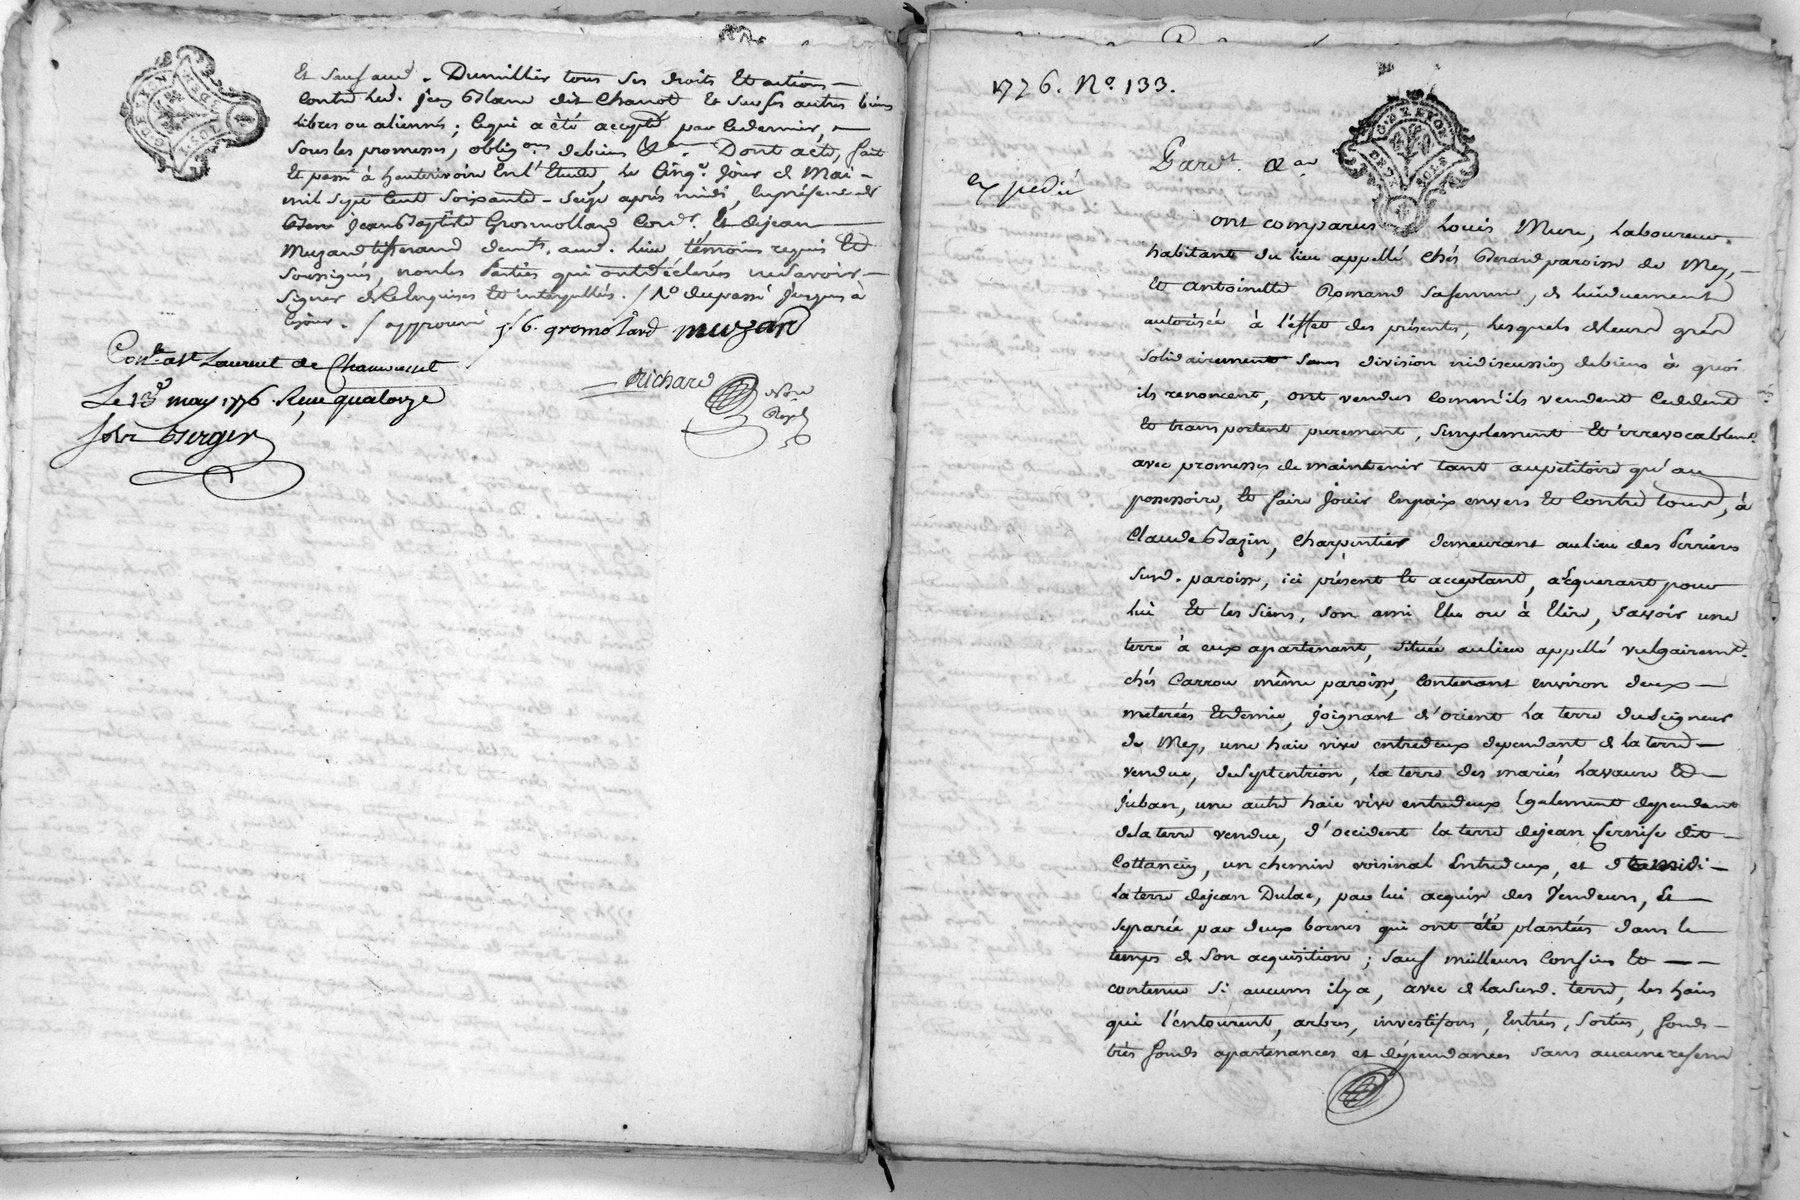 Et sauf aud. Dumillier tous ses droits Et actions
Contre led. jean Blanc dit Chanot Et sur ses autres biens
libres ou aliennés; Ce qui a été accepté par Ce dernier,
sous les promesses, oblig.ons de biens &a. Dont acte, fait
Et passé à hauterivoire En l'Etude, Le Cinq.e jour de Mai
mil sept Cent soixante seize après midi, En présence de
jean Baptiste Gromolland Cord.r Et de jean
Muzard tisserand dem.ts aud. lieu témoins requis Et
soussignés, non les Parties qui ont déclarés ne savoir
signer de Ce Enquises Et interpellés. / No. du passé jusques à
Cejour. / approuvé
j. b. gromolard muzard
Con.lé à St Laurent de Chamousset
Le 13e may 1776. Reçu quatorze
sols Berger
Richard
No.re
Royal
1776. No. 133.
G. DE LYON
DEUX SOLS
Gard.t &a
expedié
ont comparus Louis Mure, Laboureur
habitant du lieu appellé chés Berand paroisse de Mey,
Et Antoinette Romand sa femme, de lui duement
autorisée à l'effet des présentes, Lesquels de leur gré
solidairement sans division ni discussion de biens à quoi
ils renoncent, ont vendus Comm'ils vendent Ceddent
Et transportent purement, simplement Et irrevocablem.t
avec promesses de maintenir tant au petitoire qu'au
possessoire, Et faire jouir En paix envers Et Contre tous, à
Claude Bazin, Charpentier demeurant au lieu des Perrières
sud. paroisse, ici présent Et acceptant, acquerant pour
lui Et les siens, son ami Elu ou à Elire, savoir une
terre à eux apartenant, située au lieu appellé vulgairem.t
chés Carrou même paroisse, Contenant environ deux
meterées Et demie, joignant d'orient La terre du Seigneur
de Mey, une haie vive entredeux dependant de la terre
vendue, de Septentrion, la terre des mariés Lavaure Et
juban, une autre haie vive entredeux Egalement dependant
de la terre vendue, d'occident la terre de jean fernise dit
Cottancin, un chemin voisinal Entredeux, et de midi
La terre de jean Dulac, par lui acquise des Vendeurs, Et
separée par deux bornes qui ont été plantées dans le
temps de son acquisition; sauf meilleurs Confins Et
contenue si aucuns il y a, avec de lasusd. terre, les haies
qui l'entourent, arbres, investisons, Entrées, sorties, fonds
très fonds apartenances et dépendances sans aucune reserve